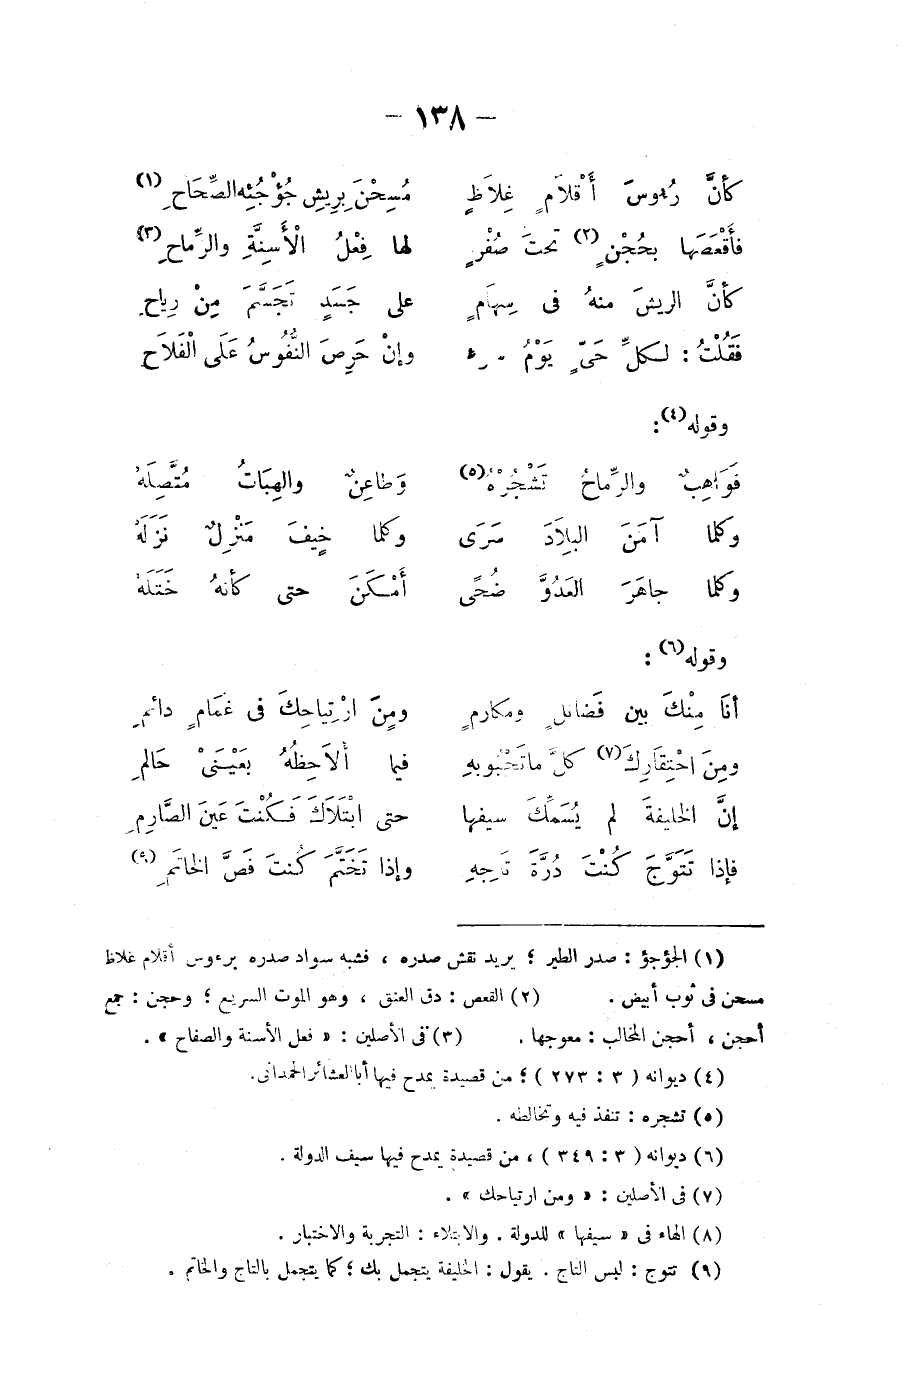 - ١٣٨ -
كأنَّ رُءوسَ أَقْلَامٍ غِلَاظٍ مُسِحْنَ بِرِيشِ جُؤْجُئِهِ الصِّحَاحِ (١)
فأَقْعَصَها بحُجْنٍ (٢) تحتَ صُفْرٍ لها فِعْلُ الْأَسِنَّةِ والرِّماحِ (٣)
كأنَّ الريشَ منهُ فى سِهَامٍ على جَسَدٍ تَجَسَّمَ مِنْ رِياحِ
فَقُلْتُ : لـكلِّ حَىٍّ يَوْمُ وإنْ حَرِصَ النُّفُوسُ عَلَى الْفَلَاحِ
وقوله (٤) :
فَوَاهِبٌ والرِّماحُ تَشْجُرُهْ (٥) وَطاعِنٌ والهِبَاتُ مُتَّصِلَهْ
وكلما آمَنَ البلِادَ سَرَى وكلما خِيفَ مَنْزِلٌ نَزَلَهْ
وكلما جاهَرَ العَدُوَّ ضُحًى أَمْـكَنَ حتى كأنهُ خَتَلَهْ
وقوله (٦) :
أنَا مِنْكَ بين فَضائلٍ ومكارمٍ ومِنَ ارْتِياحِكَ فى غَمَامٍ دائمِ
ومِنَ احْتِقَارِكَ (٧) كلَّ ما تَحْبُو بهِ فيما أُلَاحِظُهُ بعَيْـنَىْ حَالمِ
إنَّ الخليفةَ لم يُسَمِّكَ سيفها حتى ابْتَلَاكَ فَـكُنْتَ عَينَ الصَّارِمِ
فإذا تَتَوَّجَ كُنْتَ دُرَّةَ تَاجِهِ وإذا تَخَتَّمَ كُنتَ فَصَّ الخاتَمِ (٩)
(١) الجؤجؤ : صدر الطير ؛ يريد نقش صدره ، فشبه سواد صدره برءوس أقلام غلاظ
مسحن فى ثوب أبيض . (٢) القعص : دق العنق ، وهو الموت السريع ؛ وحجن : جمع
أحجن ، أحجن المخالب : معوجها . (٣) فى الأصلين : « فعل الأسنة والصفاح » .
(٤) ديوانه ( ٣ : ٢٧٣ ) ؛ من قصيدة يمدح فيها أبا العشائر الحمدانى .
(٥) تشجره : تنفذ فيه وتخالطه .
(٦) ديوانه ( ٣ : ٣٤٩ ) ، من قصيدة يمدح فيها سيف الدولة .
(٧) فى الأصلين : « ومن ارتياحك » .
(٨) الهاء فى « سيفها » للدولة . والابتلاء : التجربة والاختبار .
(٩) تتوج : لبس التاج . يقول : الخليفة يتجمل بك ؛ كما يتجمل بالتاج والخاتم .